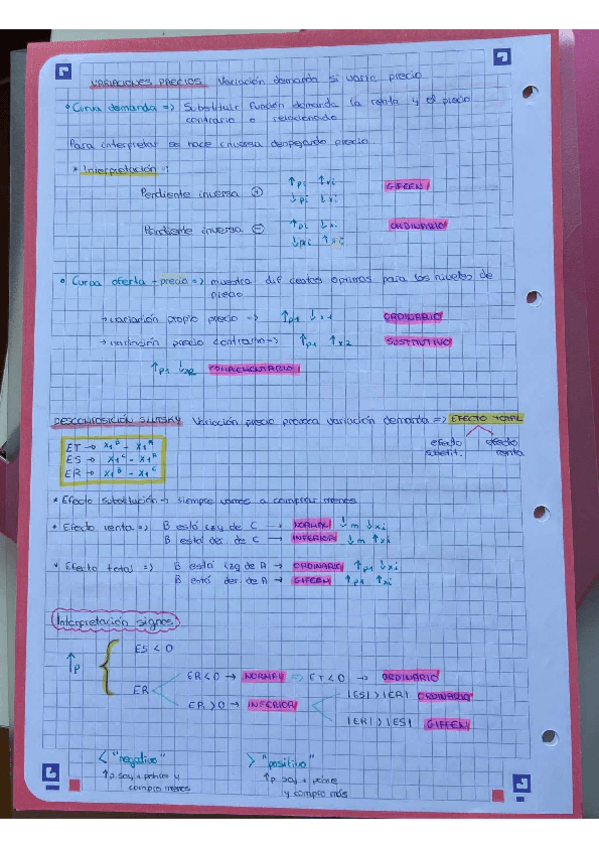 VARIACIONES PRECIOS Variación demanda si varia precio
• Curva demanda => Substituir función demanda la renta y el precio
contrario o relacionado
Para interpretar se hace inversa despejando precio
* Interpretación:
Pendiente inversa ⊕ ↑pi ↑xi GIFFEN
↓pi ↓xi
Pendiente inversa ⊖ ↑pi ↓xi ORDINARIO
↓pi ↑xi
• Curva oferta-precio => muestra dif cestas optimas para los niveles de
precio
→ variación propio precio → ↑p1 ↓x1 ORDINARIO
→ variación precio contrario → ↑p1 ↑x2 SUSTITUTIVO
↑p1 ↓x2 COMPLEMENTARIO
DESCOMPOSICIÓN SLUTSKY Variación precio provoca variación demanda => EFECTO TOTAL
efecto substit. efecto renta
ET → x1ᴮ - x1ᴬ
ES → x1ᶜ - x1ᴬ
ER → x1ᴮ - x1ᶜ
* Efecto substitución → siempre vamos a comprar menos
• Efecto renta => B está izq de C → NORMAL ↓m ↓xi
B está der. de C → INFERIOR ↓m ↑xi
* Efecto total => B está izq de A → ORDINARIO ↑p1 ↓xi
B está der. de A → GIFFEN ↑p1 ↑xi
Interpretación signos
↑p ES < 0
ER ER < 0 → NORMAL => ET < 0 → ORDINARIO
ER > 0 → INFERIOR |ES| > |ER| ORDINARIO
|ER| > |ES| GIFFEN
< "negativo" > "positivo"
↑p soy + pobre y ↑p soy + pobre
compro menos y compro más